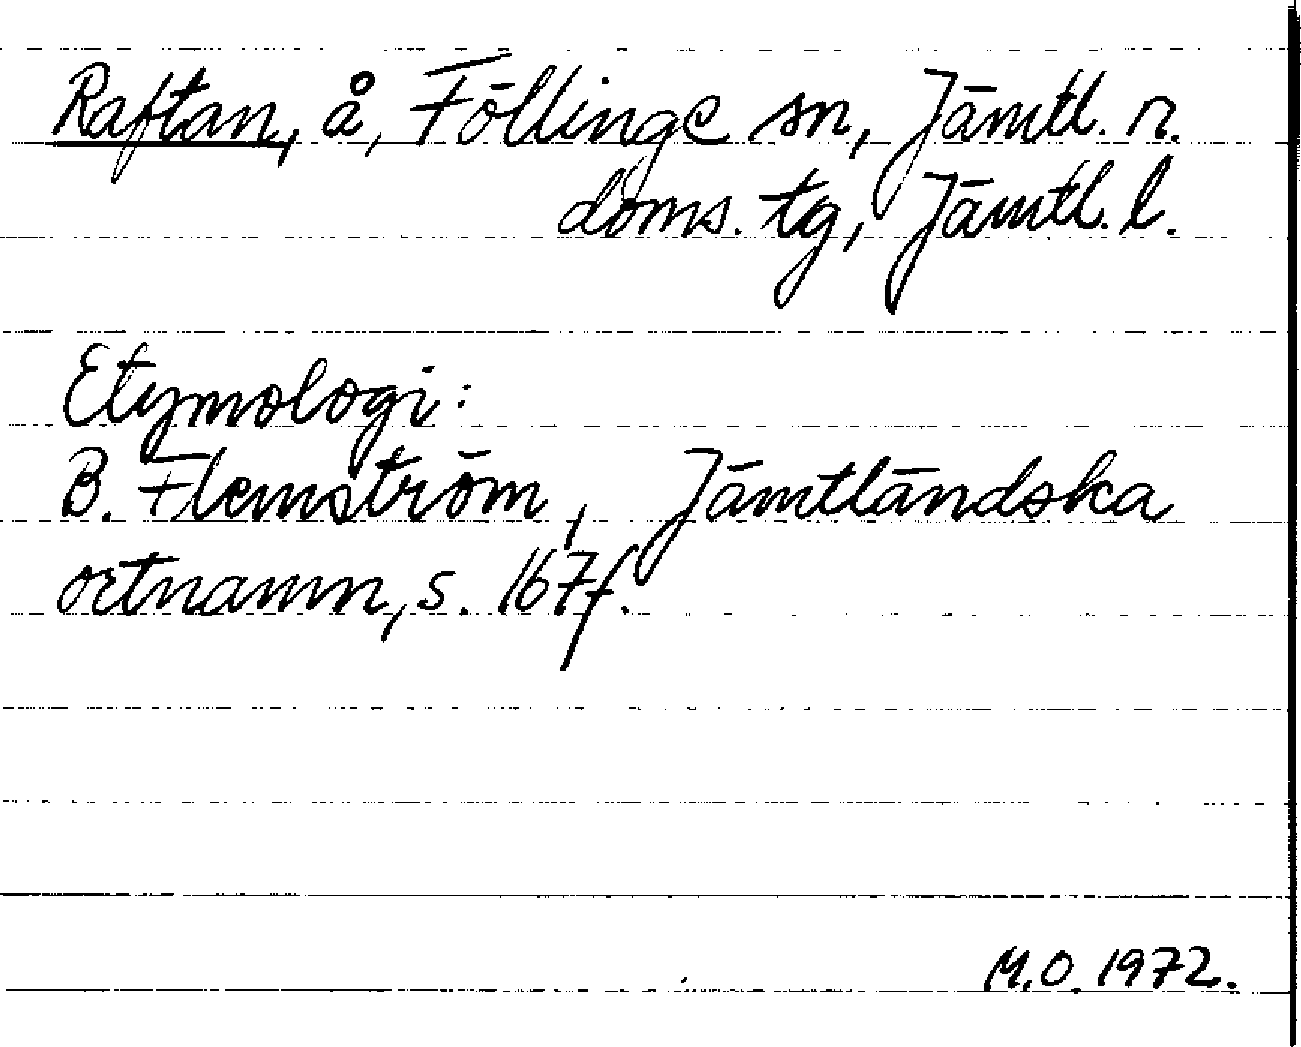 Raftan, å, Föllinge sn, Jämtl. n.
doms. tg, Jämtl. l.
Etymologi:
B. Flemström, Jämtländska
ortnamn, s. 167f.
M.O. 1972.